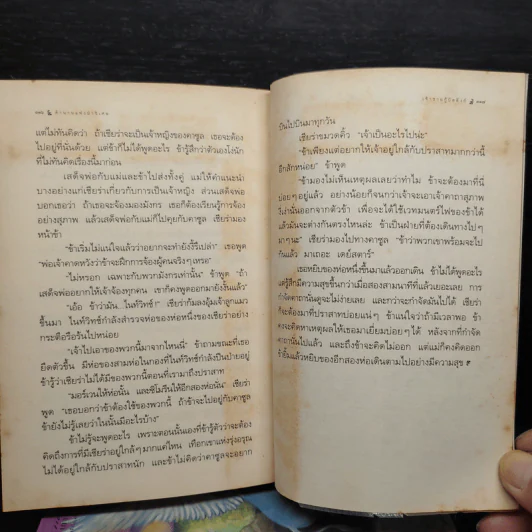 แต่ไม่ทันคิดว่า ถ้าเชียร่าจะเป็นเจ้าหญิงของคาซูล เธอจะต้อง
ไปอยู่ที่นั่นด้วย แต่ข้าก็ไม่ได้พูดอะไร ข้ารู้สึกว่าตัวเองโง่นัก
ที่ไม่ทันคิดเรื่องนี้มาก่อน
เสด็จพ่อกับแม่และข้าไปส่งทั้งคู่ แม่ให้คำแนะนำ
บางอย่างแก่เชียร่าเกี่ยวกับการเป็นเจ้าหญิง ส่วนเสด็จพ่อ
บอกเธอว่า ถ้าเธอจะจ้องมองมังกร เธอก็ต้องเรียนรู้การจ้อง
อย่างสุภาพ แล้วเสด็จพ่อกับแม่ก็ไปคุยกับคาซูล เชียร่ามอง
หน้าข้า
"ข้าเริ่มไม่แน่ใจแล้วว่าอยากจะทำยังงี้รึเปล่า" เธอพูด
"พ่อเจ้าคาดหวังว่าข้าจะฝึกการจ้องผู้คนจริงๆเหรอ"
"ไม่หรอก เฉพาะกับพวกมังกรเท่านั้น" ข้าพูด "ถ้า
เสด็จพ่ออยากให้เจ้าจ้องทุกคน เขาก็คงพูดออกมายังงั้นแล้ว"
"เอ้อ ข้าว่ามัน...ไนท์วิทช์!" เชียร่าก้มลงอุ้มเจ้าลูกแมว
ขึ้นมา ไนท์วิทช์กำลังสำรวจห่อของห่อหนึ่งของเชียร่าอย่าง
กระตือรือร้นไปหน่อย
"เจ้าไปเอาของพวกนี้มาจากไหนนี่" ข้าถามขณะที่เธอ
ยืดตัวขึ้น มีห่อของสามห่อในกองที่ไนท์วิทช์กำลังเป็นป่ายอยู่
ข้ารู้ว่าเชียร่าไม่ได้มีของพวกนี้ตอนที่เรามาถึงปราสาท
"มอร์เวนให้ห่อนั้น และซิโมรีนให้อีกสองห่อนั่น" เชียร่า
พูด "เธอบอกว่าข้าต้องใช้ของพวกนี้ ถ้าข้าจะไปอยู่กับคาซูล
ข้ายังไม่รู้เลยว่าในนั้นมีอะไรบ้าง"
ข้าไม่รู้จะพูดอะไร เพราะตอนนั้นเองที่ข้ารู้ตัวว่าจะต้อง
คิดถึงการที่มีเชียร่าอยู่ใกล้ๆมากแค่ไหน เทือกเขาแห่งรุ่งอรุณ
ไม่ได้อยู่ใกล้กับปราสาทนัก และข้าไม่คิดว่าคาซูลจะอยาก
บินไปบินมาทุกวัน
เชียร่าขมวดคิ้ว "เจ้าเป็นอะไรไปน่ะ"
"ข้าเพียงแต่อยากให้เจ้าอยู่ใกล้กับปราสาทมากกว่านี้
อีกสักหน่อย" ข้าพูด
"ข้ามองไม่เห็นเหตุผลเลยว่าทำไม ข้าจะต้องมาที่นี่
บ่อยๆอยู่แล้ว อย่างน้อยก็จนกว่าเจ้าจะเอาเจ้าคาถาสุภาพ
งี่เง่านั่นออกจากตัวข้า เพื่อจะได้ใช้เวทมนตร์ไฟของข้าได้
แล้วมันจะต่างกันตรงไหนล่ะ ข้าเป็นฝ่ายที่ต้องเดินทางไปๆ
มาๆนะ" เชียร่ามองไปทางคาซูล "ข้าว่าพวกเขาพร้อมจะไป
กันแล้ว มาเถอะ เดย์สตาร์"
เธอหยิบของห่อหนึ่งขึ้นมาแล้วออกเดิน ข้าไม่ได้พูดอะไร
แต่รู้สึกมีความสุขขึ้นกว่าเมื่อสองสามนาทีที่แล้วเยอะเลย การ
กำจัดคาถานั้นดูจะไม่ง่ายเลย และกว่าจะกำจัดมันไปได้ เชียร่า
ก็จะต้องมาที่ปราสาทบ่อยแน่ๆ ข้าแน่ใจว่าถ้ามีเวลาพอ ข้า
คงจะคิดหาเหตุผลให้เธอมาเยี่ยมบ่อยๆได้ หลังจากที่กำจัด
คาถานั้นไปแล้ว และถึงข้าจะคิดไม่ออก แต่แม่ก็คงคิดออก
ข้ายิ้มแล้วหยิบของอีกสองห่อเดินตามไปอย่างมีความสุข